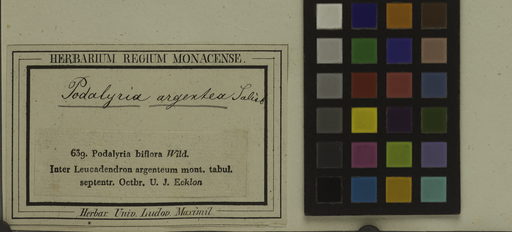 HERBARIUM REGIUM MONACENSE.
Podalyria argentea Salisb
639. Podalyria biflora Wild.
Inter Leucadendron argenteum mont. tabul.
septentr. Octbr. U. J. Ecklon
Herbar. Univ. Ludov. Maximil.